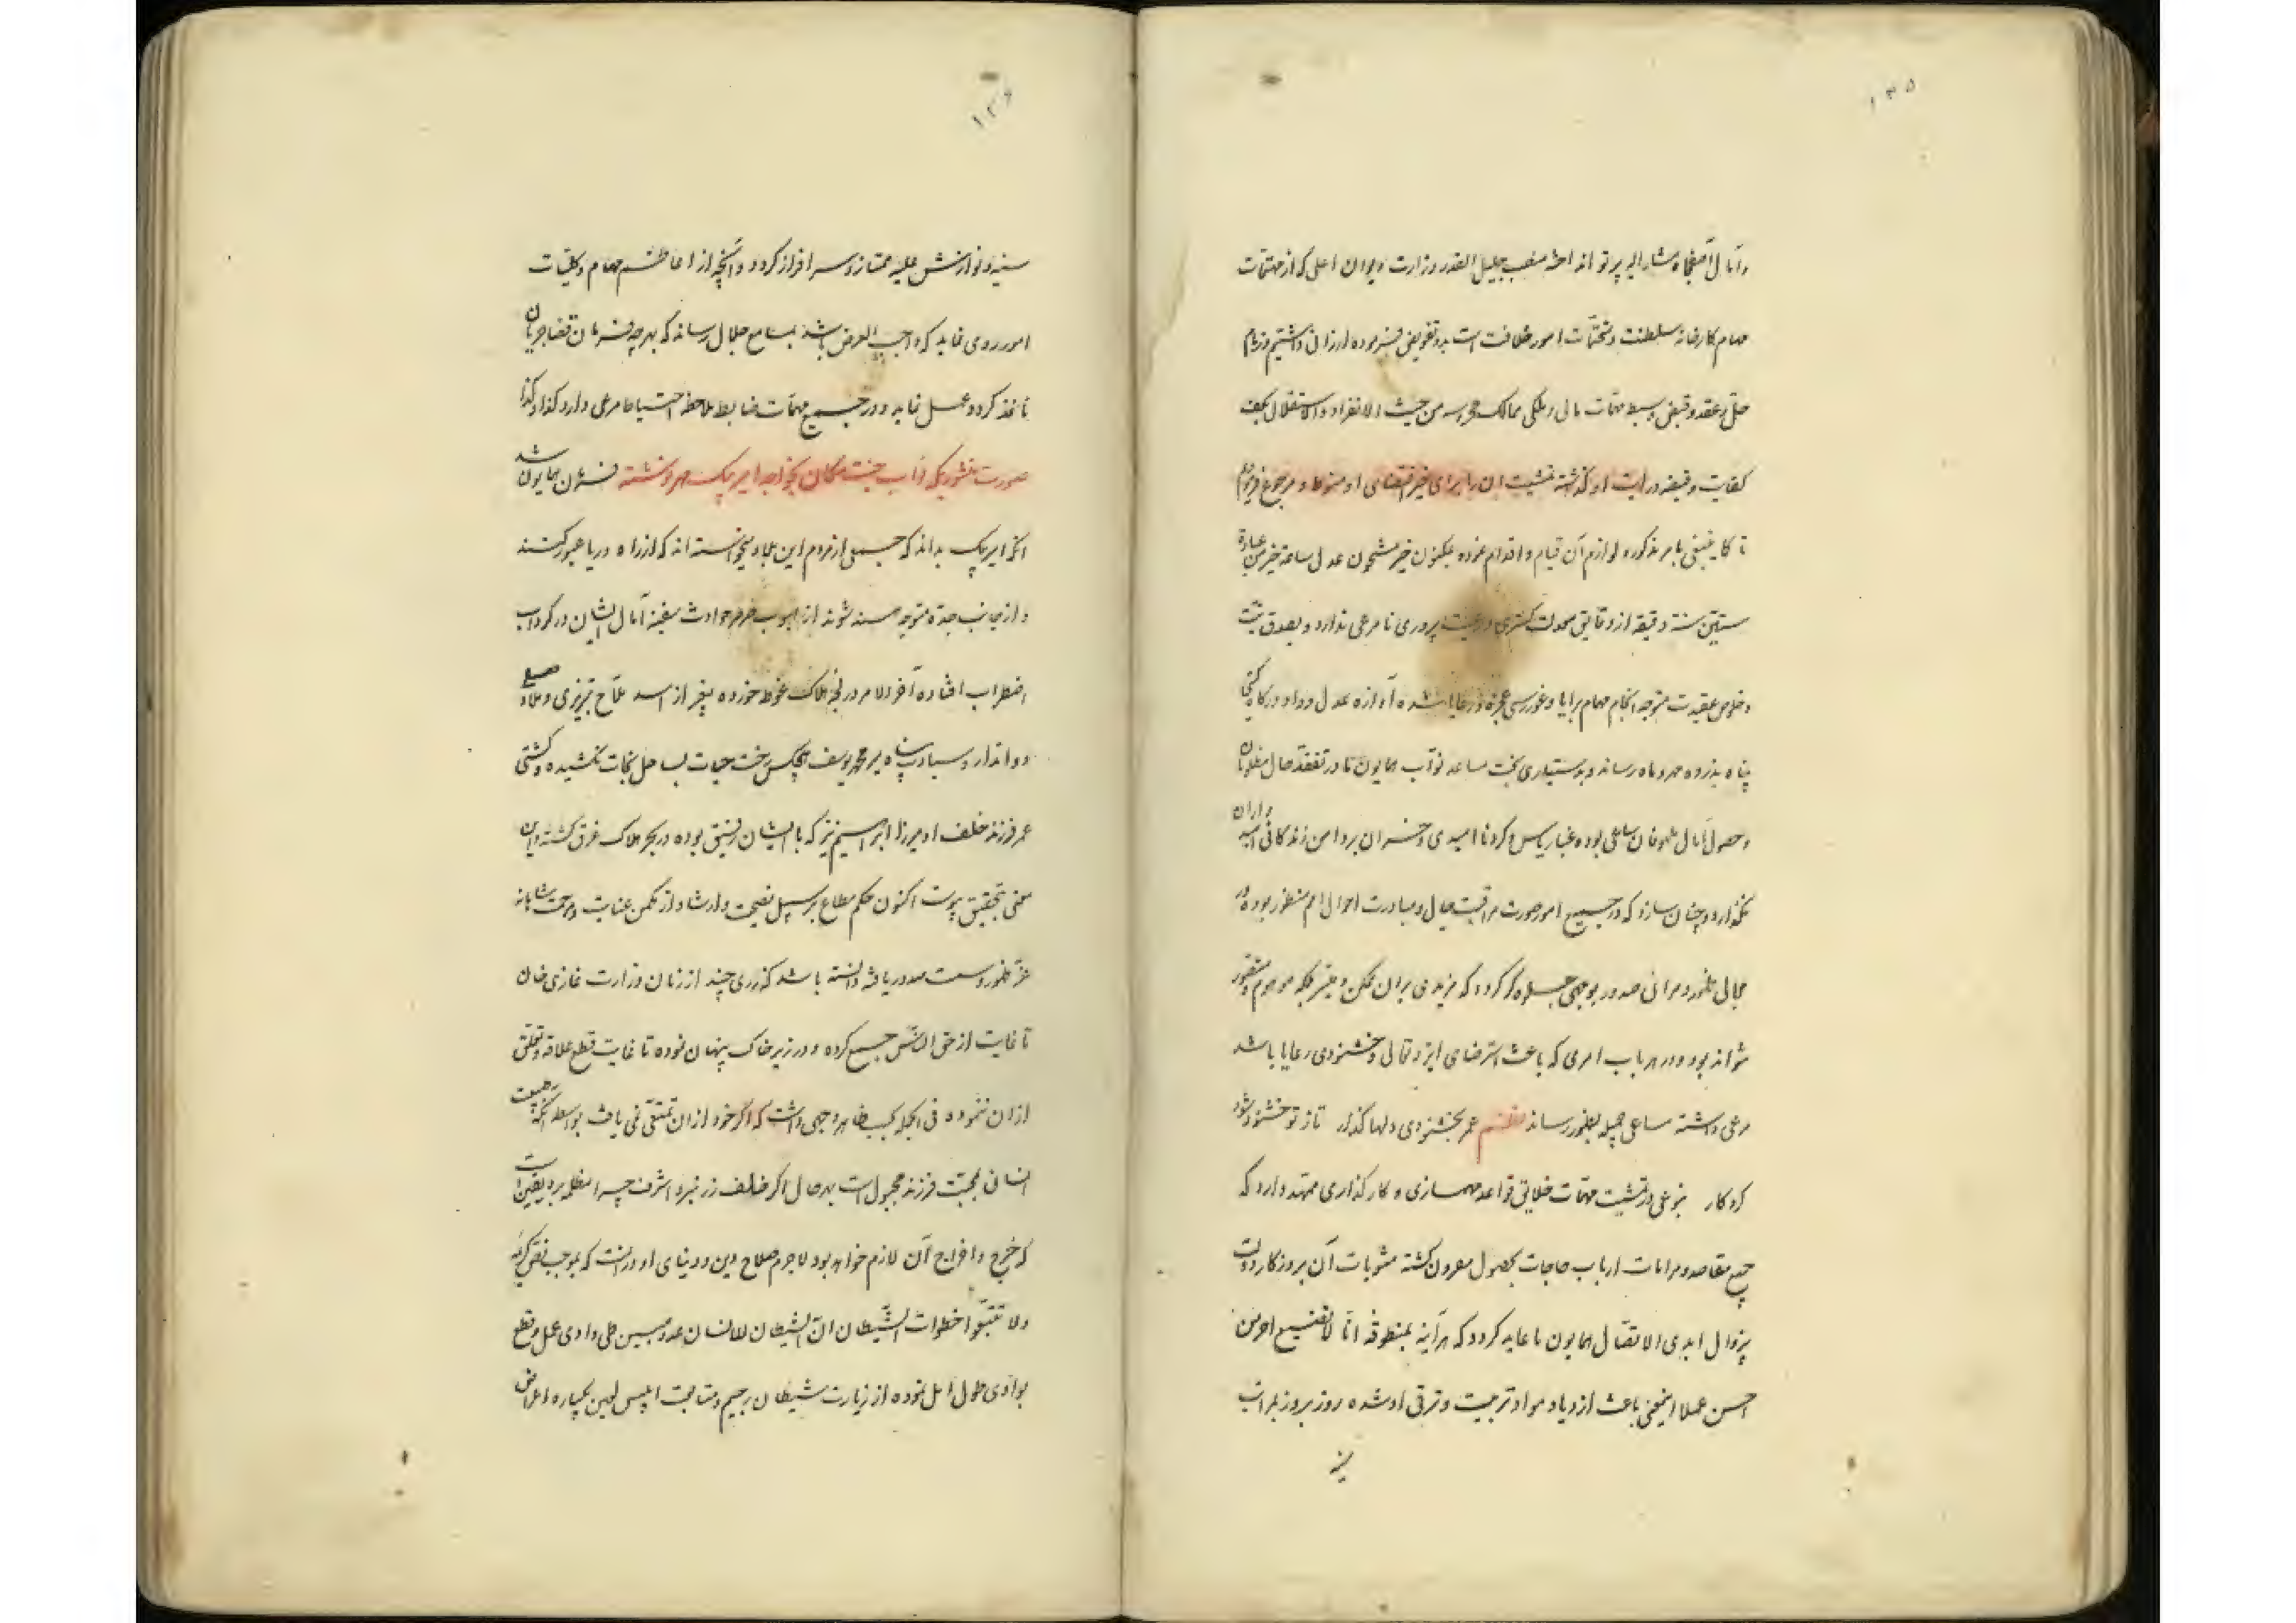 ۱۳۵
و آمال آصفجاه مشار الیه پرتو انداخته منصب جلیل القدر وزارت دیوان اعلی که از مهمات
مهام کارخانه سلطنت و متحتمات امور خلافت است بدو تفویض فرموده ارزانی داشتیم و زمام
حل و عقد و قبض و بسط مهمات مالی و ملکی ممالک محروسه من حیث الانفراد و الاستقلال بکف
کفایت و قبضه درایت او گذاشته تمشیت ان را برای خیر اقتضای او منوط و مرجوع فرمودیم
تا کما ینبغی بامر مذکور و لوازم آن قیام و اقدام نموده بمکنون خبر مشحون عدل ساعة خیر من عبادة
ستین سنة دقیقه از دقایق معدلت گستری و رعیت پروری نامرعی نذارد و بصدق نیت
و خلوص عقیدت متوجه انجام مهام برایا و غوررسی عجزه و رعایا شده آوازه عدل و داد درگاه گیتی
پناه بذروه مهر و ماه رساند و بدستیاری بخت مساعد نوآب همایون ما در تفقد حال مظلومان
و حصول آمال ملهوفان ساعی بوده غبار یاس و گرد ناامیدی و خسران بر دامن زندگانی امیدواران
نگذارد و چنان سازد که در جمیع امور صورت مراقبت حال و مبادرت احوال امم منظور بوده در
مجالی ظهور و مرائی صدور بوجهی جلوه گر گردد که مزیدی بر ان ممکن و میسر بلکه موهوم و متصور
نتواند بود و در هر باب امری که باعث استرضای ایزد تعالی و خشنودی رعایا باشد
مرعی داشته مساعی جمیله بظهور رساند نظم عمر بخشنودی دلها گذار تا ز تو خشنود شود
کردکار بنوعی در تمشیت مهمات خلایق قواعد مهمسازی و کارگذاری ممهد دارد که
جمیع مقاصد و مرامات ارباب حاجات بحصول مقرون گشته مثوبات آن بروزگار دولت
بیزوال ابدی الاتصال همایون ما عاید گردد که هر آینه بمنطوقه انا لا نضیع اجر من
احسن عملا اینمعنی باعث ازدیاد مواد تربیت و ترقی او شده روز بروز بمراتب
۱۳۶
سنیه و نوازش علیه ممتاز و سرافراز گردد و آنچه از اعاظم مهام و کلیات
امور روی نماید که واجب العرض باشد بمسامع جلال رساند که بهر چه فرمان قضا جریان
نافذ گردد عمل نماید و در جمیع مهمات ضابطه ملاحظه احتیاط مرعی دارد کذا و کذا
صورت منشوریکه نواب جنت مکان بخواجه امیر بیک مهر نوشته فرمان همایون شد
آنکه امیر بیک بداند که جمعی از مردم این بلاد میخواسته اند که از راه دریا عبور کنند
و از جانب جده متوجه هند شوند از هبوب صرصر حوادث سفینه آمال ایشان در گرداب
اضطراب افتاده آخر الامر در لجه هلاک غوطه خورده بغیر از اسد ملاح تبریزی و ملا
دواتدار و سیادت پناه میر محمد یوسف هیچکس رخت حیات بساحل نجات نکشیده و کشتی
عمر فرزند خلف او میرزا ابراهیم نیز که با ایشان رفیق بوده در بحر هلاک غرق گشته و این
معنی بتحقیق پیوست اکنون حکم مطاع بر سبیل نصیحت و ارشاد از مکمن عنایت و مرحمت شاهانه
عز ظهور و سمت صدور یافته دانسته باشد که زری چند از زمان وزارت غازی خان
تا غایت از حق الناس جمع کرده و در زیر خاک پنهان نموده تا غایت قطع علاقه و تعلق
از ان ننموده فی الجمله بحسب ظاهر وجهی داشت که اگر خود از ان تمتعی نمی یافت بواسطه آنکه طبیعت
انسانی بمحبت فرزند مجبول است بهر حال اکر خلف زر نبرد اشرف چرا مظلمه برد یقین است
که خرج و اخراج آن لازم خواهد بود لاجرم صلاح دین و دنیای او در انست که بموجب نص کریمه
ولا تتبعوا خطوات الشیطان ان الشیطان للانسان عدو مبین طی وادی عمل و قطع
بوادی طول امل نموده از زیارت شیطان رجیم و متابعت ابلیس لعین یکباره اعراض